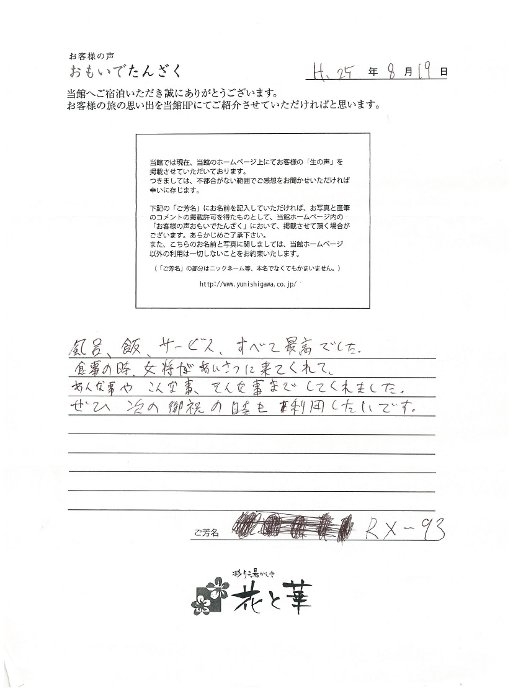 お客様の声
おもいでたんざく
H.25 年 8 月 19 日
当館へご宿泊いただき誠にありがとうございます。
お客様の旅の思い出を当館HPにてご紹介させていただければと思います。
当館では現在、当館のホームページ上にてお客様の「生の声」を
掲載させていただいております。
つきましては、不都合がない範囲でご感想をお聞かせいただければ
幸いに存じます。
下記の「ご芳名」にお名前を記入していただければ、お写真と直筆
のコメントの掲載許可を得たものとして、当館ホームページ内の
「お客様の声おもいでたんざく」において、掲載させて頂く場合が
ございます。あらかじめご了承下さい。
また、こちらのお名前と写真に関しましては、当館ホームページ
以外の利用は一切しないことをお約束いたします。
(「ご芳名」の部分はニックネーム等、本名でなくてもかまいません。)
http://www.yunishigawa.co.jp/
風呂、飯、サービス、すべて最高でした。
食事の時、女将があいさつに来てくれて、
あんな事や こんな事、そんな事までしてくれました。
ぜひ 次の御祝の時も利用したいです。
ご芳名 RX-93
花と華